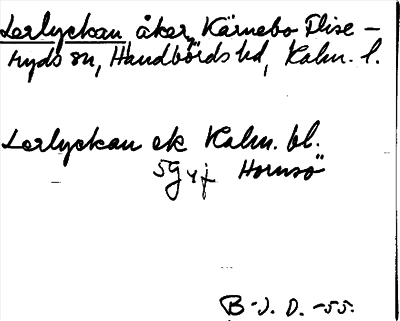 Lerlyckan åker, Kärnebo Flise-
ryds sn, Handbörds hd, Kalm. l.
Lerlyckan ek Kalm. bl.
5G4f Hornsö
B-J. D. -55.